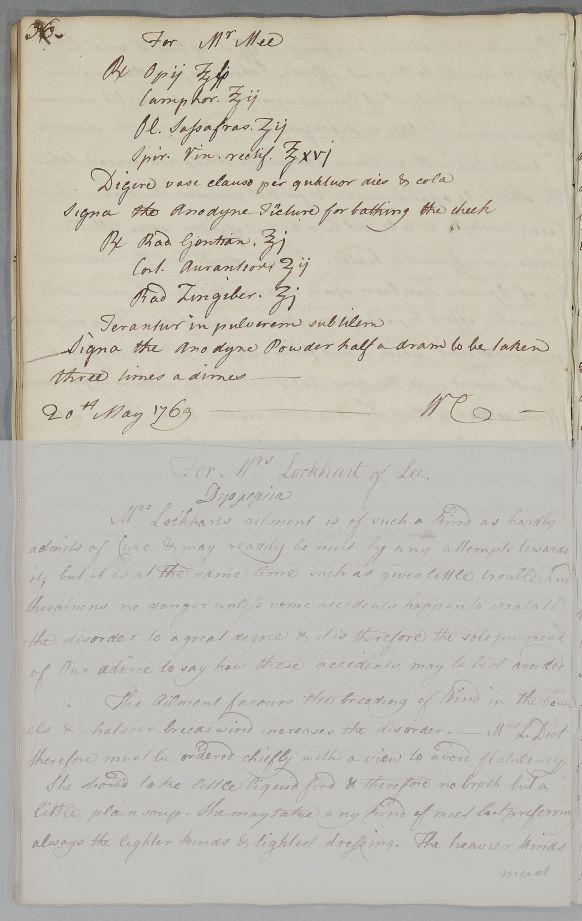 36.
For Mr Mee
Rx Opij ℥ss
Camphor. ℥ij
Ol. Sassafras. ʒij
Spir. Vin. rectif. ℥xvj
Digere vase clauso per quatuor dies & cola
Signa the Anodyne Ticture for bathing the cheek
Rx Rad Gentian. ℥j
Cort. Aurantior ʒij
Rad Zingiber. ʒj
Terantur in pulverem subtilem
Signa the Anodyne Powder half a dram to be taken
three times a dimes
20th May 1769 WC
For Mrs Lockhart of Lee.
Dyspepsia
Mrs Lockharts ailment is of such a kind as hardly
admits of Cure & may readily be hurt by any attempts towards
it; but it is at the same time such as gives little trouble and
threatnens no danger unless some accidents happen to irritate
the disorder to a great degree & it is therefore the sole purpose
of Our advice to say how these accidents may be best avoided
The Ailment favours the breeding of Wind in the bow-
els & whatever breeds wind increases the disorder. — Mrs L. Diet
therefore must be ordered chiefly with a view to avoid flatulency.
She should take little liquid food & therefore no broth but a
little plain soup. She may take any kind of meet but preferring
always the lighter kinds & lightest dressing. The heavier kinds
must